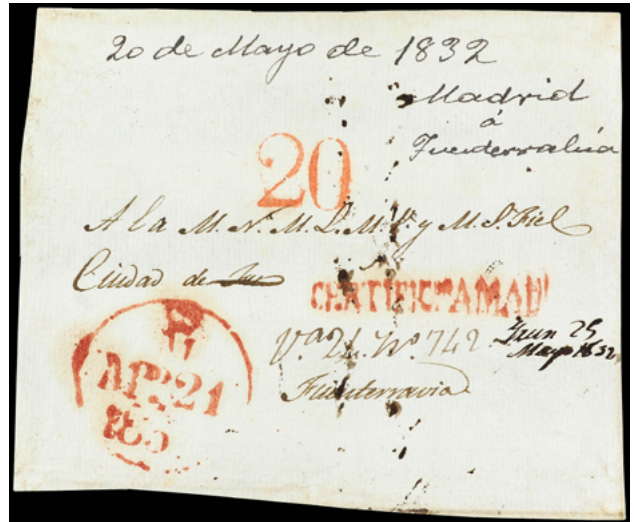 20 de Mayo de 1832
Madrid
á
Fuenterrabía
20
A la M. N. M. L. M. V. y M. S. Fiel
Ciudad de
CERTIFIC
Vª 24. Nº 742
Irun 25
Mayo 1832
Fuenterravia
21